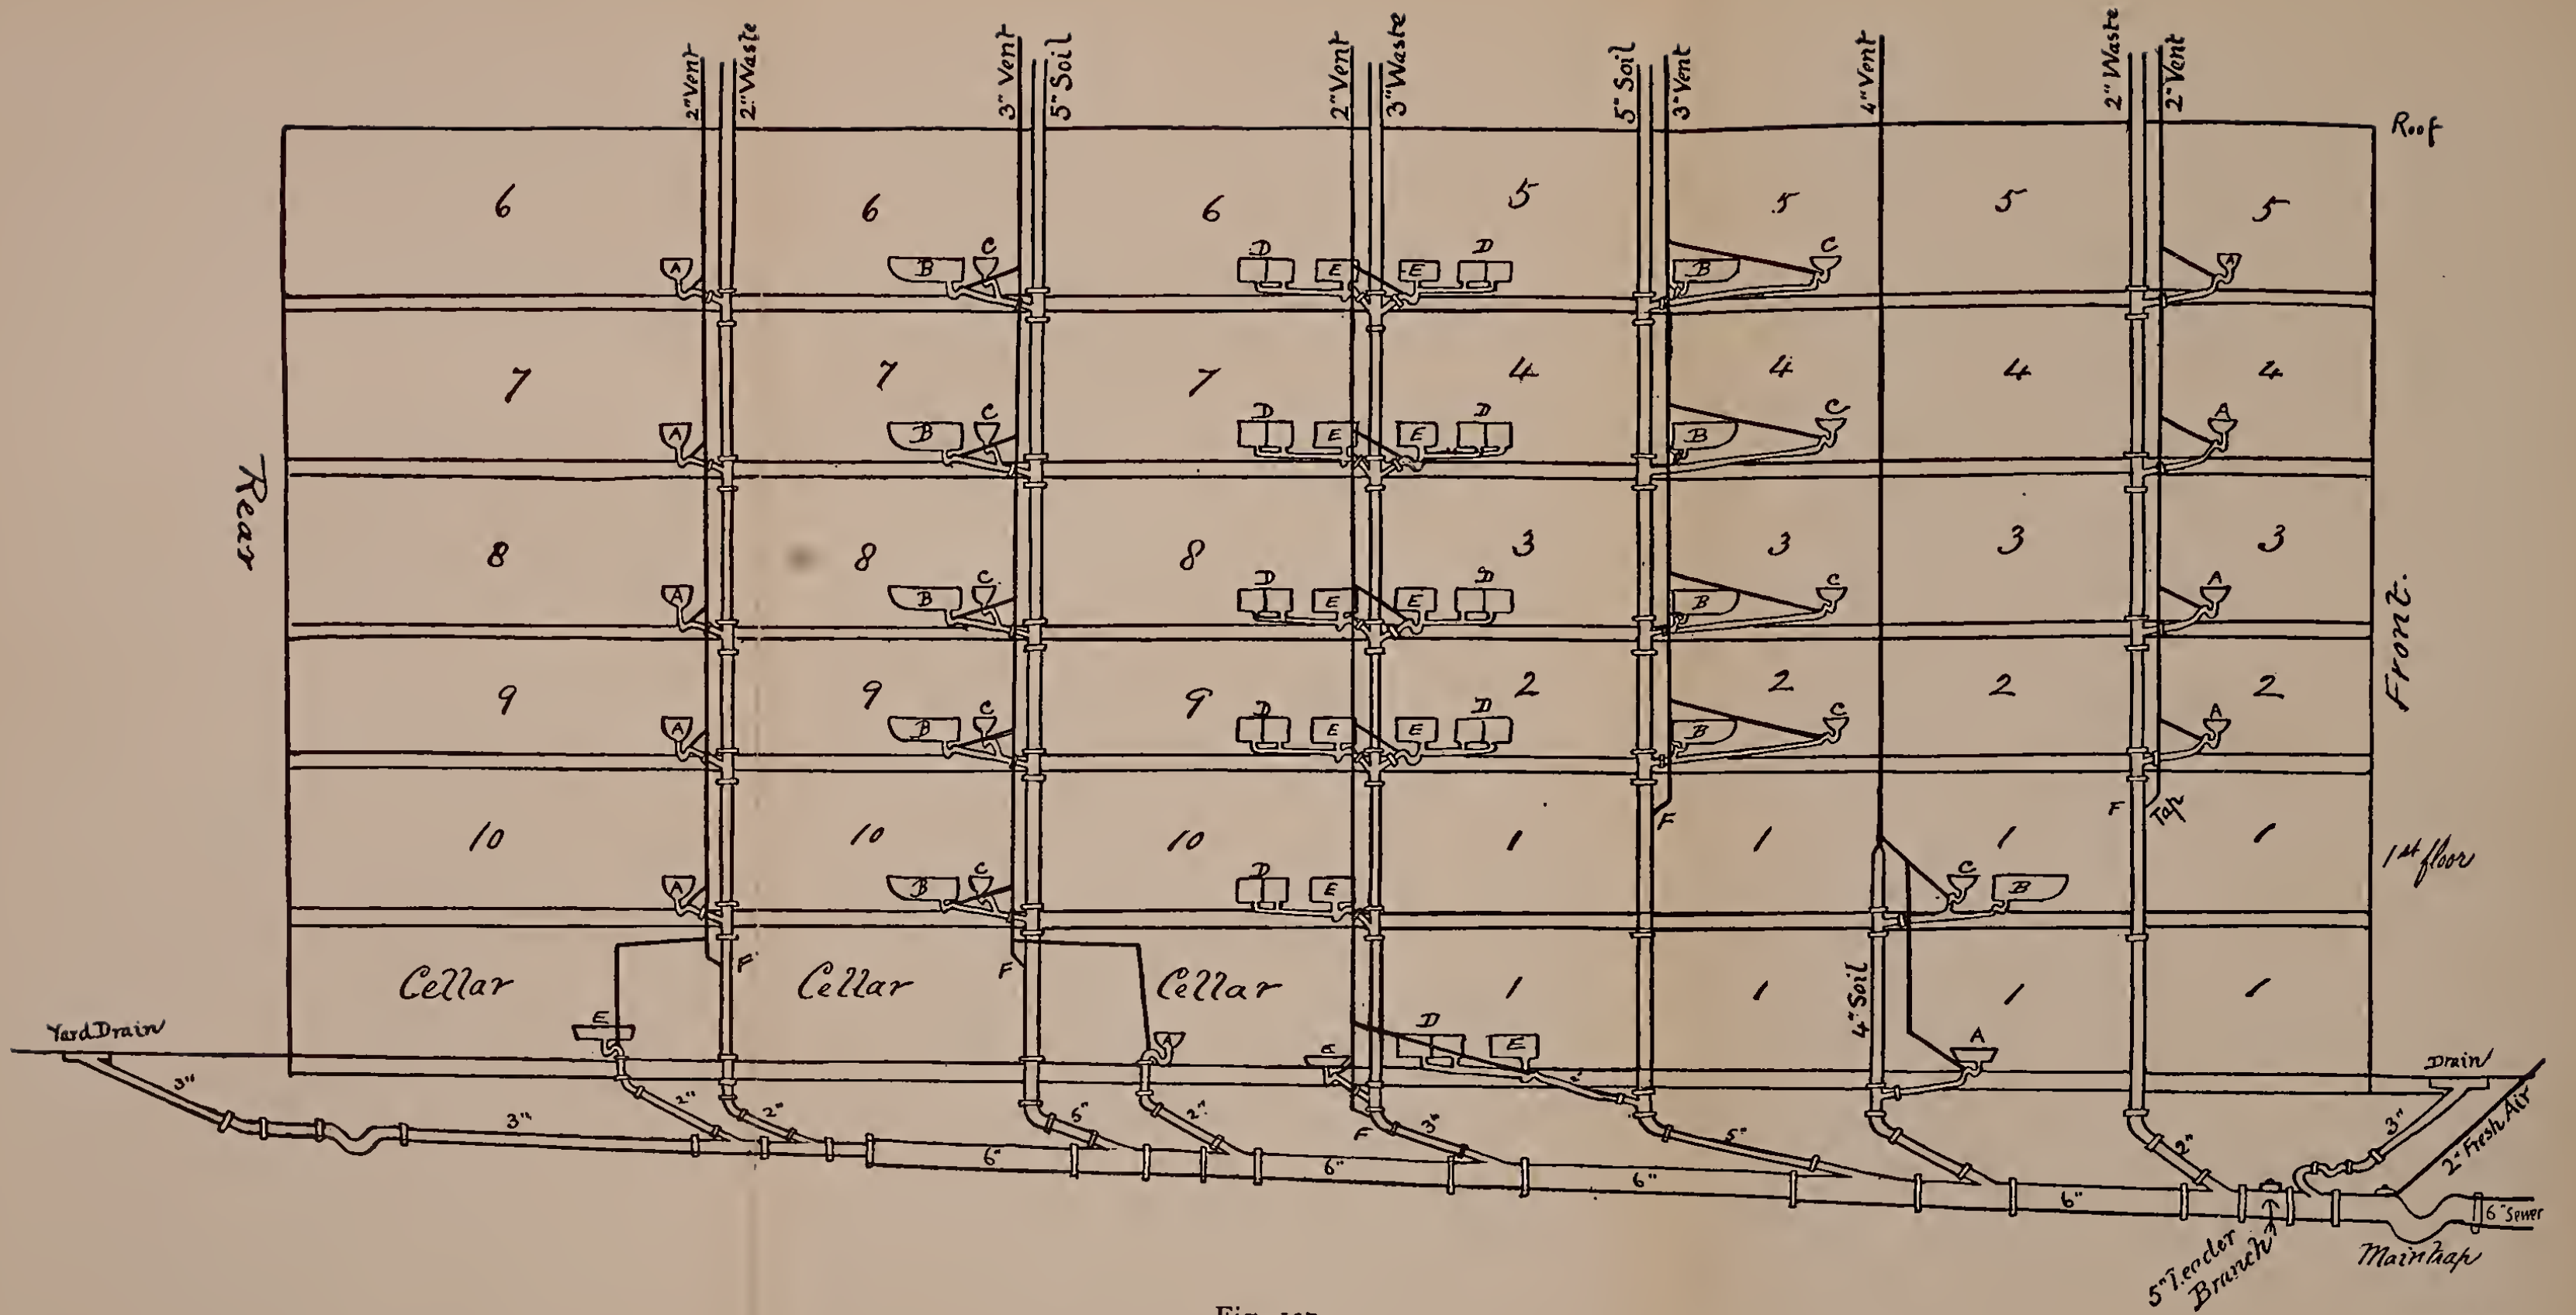 2" Vent 2" Waste 3" Vent 5" Soil 2" Vent 3" Waste 5" Soil 3" Vent 4" Vent 2" Waste 2" Vent
Roof
6 6 6 5 5 5 5
A B C D E E D B C A
7 7 7 4 4 4 4
A B C D E E D B C A
Rear
8 8 8 3 3 3 3
A B C D E E D B C A
Front.
9 9 9 2 2 2 2
A B C D E E D B C A
F F Tap
10 10 10 1 1 1 1
1st floor
A B C D E C B
F F
Cellar Cellar Cellar 1 1 4" Soil 1 1
Yard Drain E A E D E A Drain
3" 3" 2" 2" 5" 2" F 3" 2" 5" 2" 3" 2" Fresh Air
6" 6" 6" 6" 6" Sewer
5" Leader
Branch
Main trap